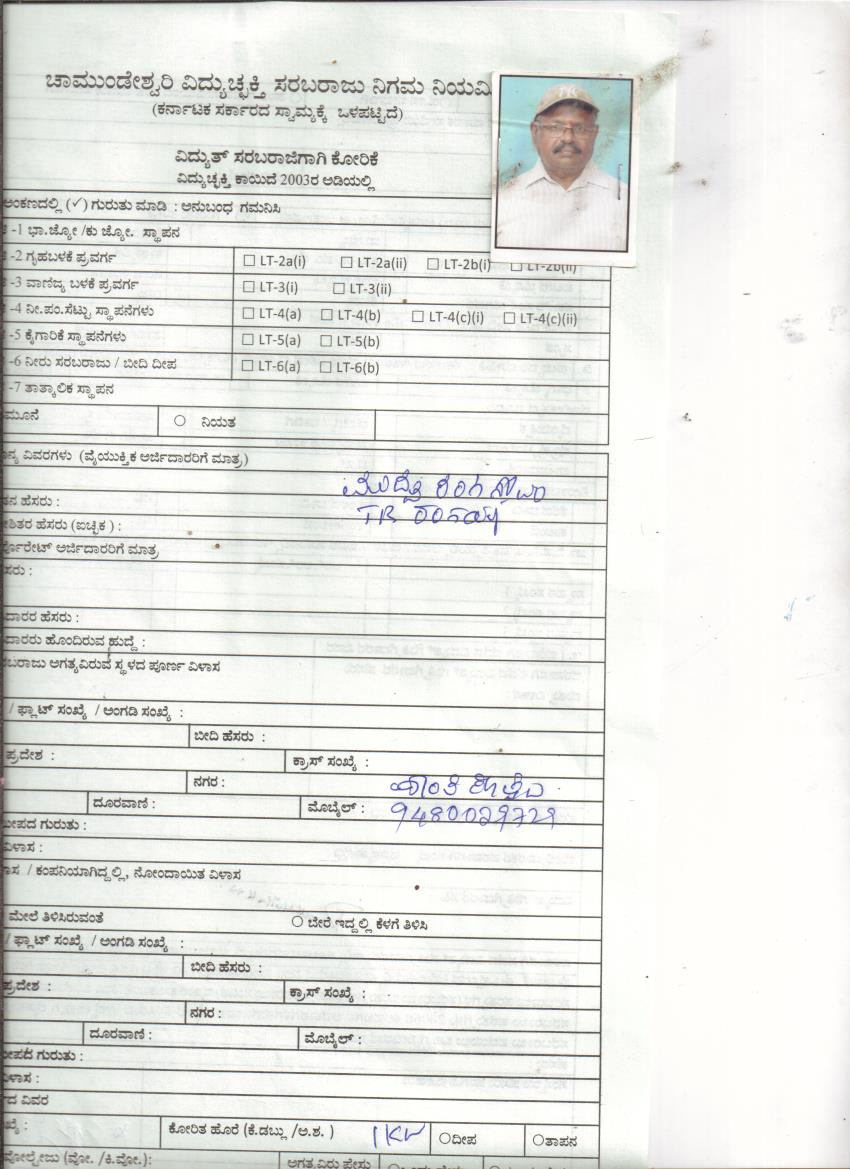 ಚಾಮುಂಡೇಶ್ವರಿ ವಿದ್ಯುಚ್ಛಕ್ತಿ ಸರಬರಾಜು ನಿಗಮ ನಿಯಮಿ
(ಕರ್ನಾಟಕ ಸರ್ಕಾರದ ಸ್ವಾಮ್ಯಕ್ಕೆ ಒಳಪಟ್ಟಿದೆ)
ವಿದ್ಯುತ್ ಸರಬರಾಜಿಗಾಗಿ ಕೋರಿಕೆ
ವಿದ್ಯುಚ್ಛಕ್ತಿ ಕಾಯಿದೆ 2003ರ ಅಡಿಯಲ್ಲಿ
ಅಂಕಣದಲ್ಲಿ (✓) ಗುರುತು ಮಾಡಿ : ಅನುಬಂಧ ಗಮನಿಸಿ
-1 ಭಾ.ಜ್ಯೋ /ಕು ಜ್ಯೋ. ಸ್ಥಾಪನ
-2 ಗೃಹಬಳಕೆ ಪ್ರವರ್ಗ ☐ LT-2a(i) ☐ LT-2a(ii) ☐ LT-2b(i) ☐ LT-2b(ii)
-3 ವಾಣಿಜ್ಯ ಬಳಕೆ ಪ್ರವರ್ಗ ☐ LT-3(i) ☐ LT-3(ii)
-4 ನೀ.ಪಂ.ಸೆಟ್ಟು ಸ್ಥಾಪನೆಗಳು ☐ LT-4(a) ☐ LT-4(b) ☐ LT-4(c)(i) ☐ LT-4(c)(ii)
-5 ಕೈಗಾರಿಕೆ ಸ್ಥಾಪನೆಗಳು ☐ LT-5(a) ☐ LT-5(b)
-6 ನೀರು ಸರಬರಾಜು / ಬೀದಿ ದೀಪ ☐ LT-6(a) ☐ LT-6(b)
-7 ತಾತ್ಕಾಲಿಕ ಸ್ಥಾಪನ
ಮೂನೆ ○ ನಿಯತ
ನ್ಯ ವಿವರಗಳು (ವೈಯುಕ್ತಿಕ ಅರ್ಜಿದಾರರಿಗೆ ಮಾತ್ರ)
ತನ ಹೆಸರು :
ಶಿತರ ಹೆಸರು (ಐಚ್ಛಿಕ) :
ರ್ಪೊರೇಟ್ ಅರ್ಜಿದಾರರಿಗೆ ಮಾತ್ರ
ಸರು :
ದಾರರ ಹೆಸರು :
ದಾರರು ಹೊಂದಿರುವ ಹುದ್ದೆ :
ರಬರಾಜು ಅಗತ್ಯವಿರುವ ಸ್ಥಳದ ಪೂರ್ಣ ವಿಳಾಸ
/ ಫ್ಲಾಟ್ ಸಂಖ್ಯೆ / ಅಂಗಡಿ ಸಂಖ್ಯೆ :
ಬೀದಿ ಹೆಸರು :
ಪ್ರದೇಶ : ಕ್ರಾಸ್ ಸಂಖ್ಯೆ :
ನಗರ :
ದೂರವಾಣಿ : ಮೊಬೈಲ್ : 9480029729
ೀಪದ ಗುರುತು :
ವಿಳಾಸ :
ಾಸ / ಕಂಪನಿಯಾಗಿದ್ದಲ್ಲಿ, ನೋಂದಾಯಿತ ವಿಳಾಸ
ಮೇಲೆ ತಿಳಿಸಿರುವಂತೆ ○ ಬೇರೆ ಇದ್ದಲ್ಲಿ ಕೆಳಗೆ ತಿಳಿಸಿ
/ ಫ್ಲಾಟ್ ಸಂಖ್ಯೆ / ಅಂಗಡಿ ಸಂಖ್ಯೆ :
ಬೀದಿ ಹೆಸರು :
ಪ್ರದೇಶ : ಕ್ರಾಸ್ ಸಂಖ್ಯೆ :
ನಗರ :
ದೂರವಾಣಿ : ಮೊಬೈಲ್ :
ೀಪದ ಗುರುತು :
ವಿಳಾಸ :
ದ ವಿವರ
ಖ್ಯೆ : ಕೋರಿತ ಹೊರೆ (ಕೆ.ಡಬ್ಲ್ಯು /ಅ.ಶ. ) 1KW ○ದೀಪ ○ತಾಪನ
ವೋಲ್ಟೇಜು (ವೋ. /ಕಿ.ವೋ.):